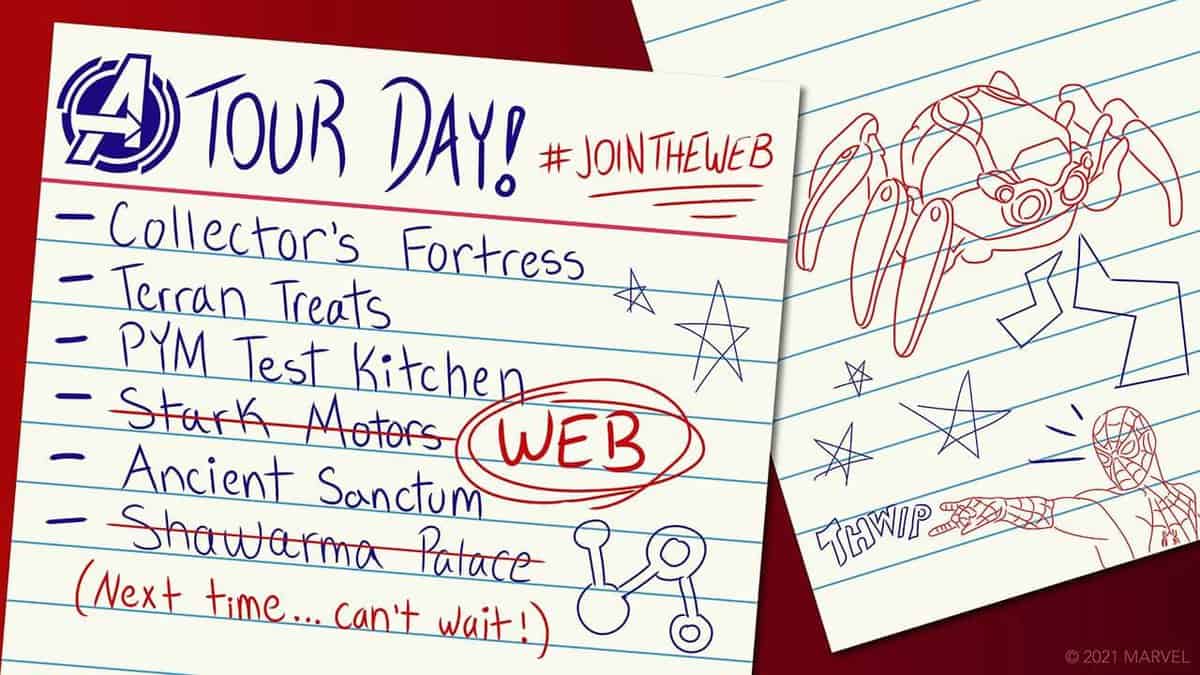 TOUR DAY! #JOINTHEWEB
- Collector's Fortress
- Terran Treats
- PYM Test Kitchen
- Stark Motors WEB
- Ancient Sanctum
- Shawarma Palace
(Next time... can't wait!)
THWIP
© 2021 MARVEL